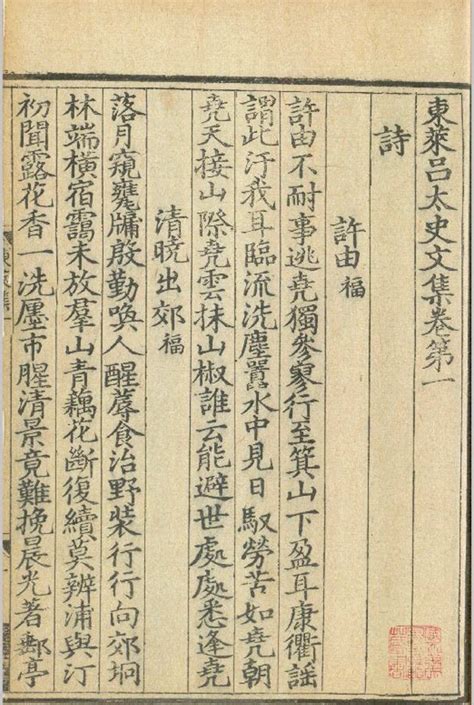 東萊呂太史文集卷第一
詩
許由福
許由不耐事逃堯獨參寥行至箕山下盈耳康衢謡
謂此汙我耳臨流洗塵囂水中見日馭勞苦如堯朝
堯天接山際堯雲抹山椒誰云能避世處處悉逢堯
清曉出郊福
落月窺甕牖殷勤喚人醒蓐食治野裝行行向郊坰
林端橫宿靄未放羣山青藕花斷復續莫辨浦與汀
初聞露花香一洗廛市腥清景竟難挽晨光著郵亭